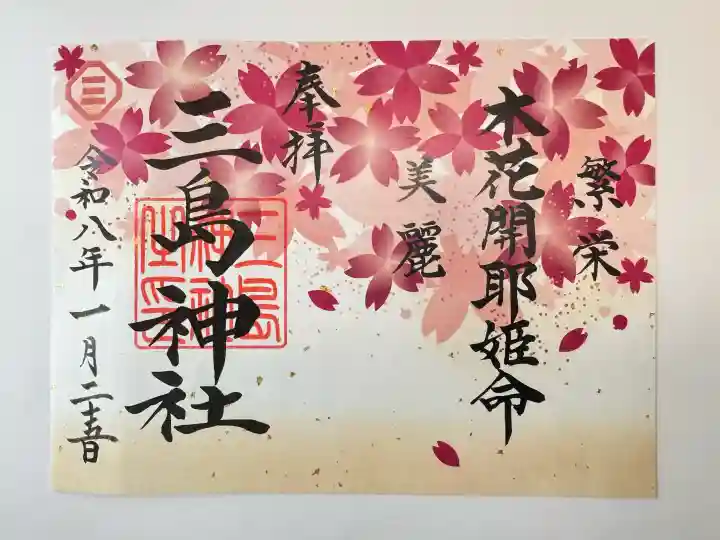 繁栄
木花開耶姫命
美麗
奉拝
三島神社
令和八年一月二十五日